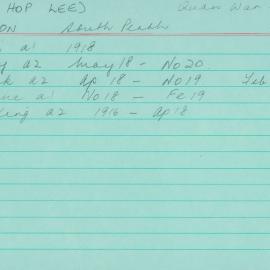 HOP LEE) Quan Wan
ON South Perth
a1 1918
a2 May 18 - No 20.
k a2 Ap 18 - No 19 Feb
ne a1 No 18 - Fe 19
ing a2 1916 - Ap 18